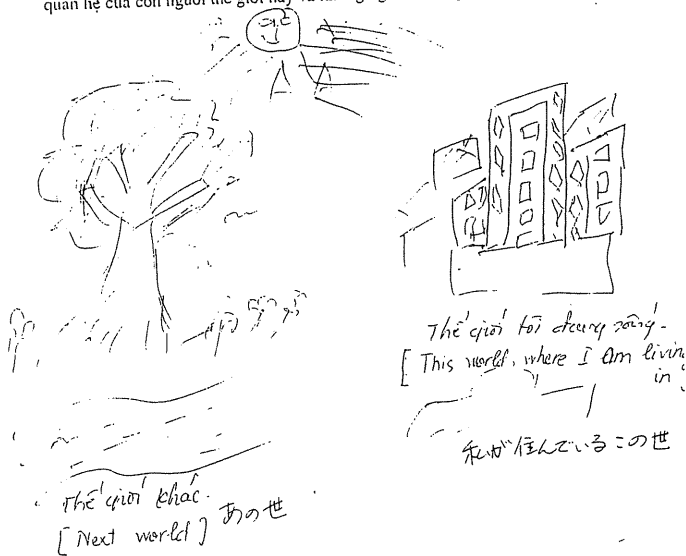 quan hệ của con người thế giới này và
Thế giới tôi đang sống.
[ This world, where I Am living
in
私が住んでいるこの世
Thế giới khác.
[ Next world ] あの世